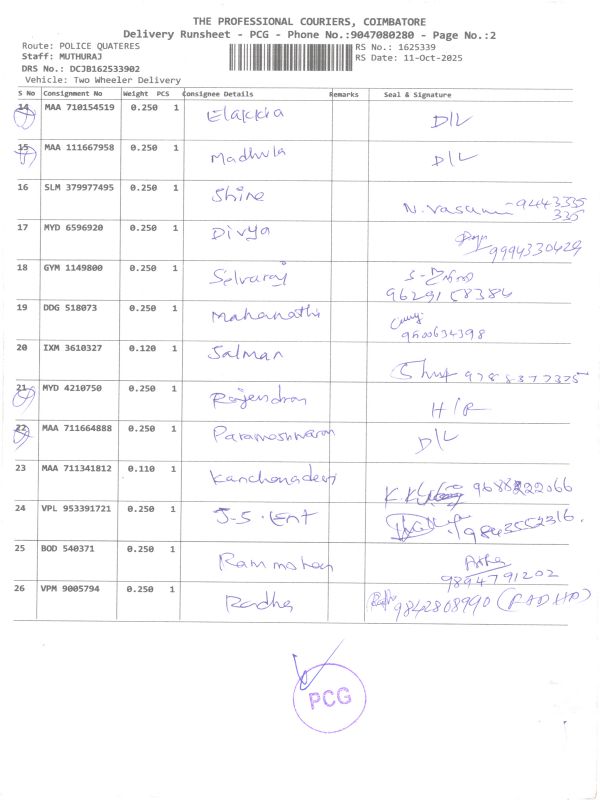 THE PROFESSIONAL COURIERS, COIMBATORE
Delivery Runsheet - PCG - Phone No.:9047080280 - Page No.:2
Route: POLICE QUATERES
RS No.: 1625339
Staff: MUTHURAJ
RS Date: 11-Oct-2025
DRS No.: DCJB162533902
Vehicle: Two Wheeler Delivery
S No Consignment No Weight PCS Consignee Details Remarks Seal & Signature
14 MAA 710154519 0.250 1 Elakkia D/L
15 MAA 111667958 0.250 1 Madhula D/L
16 SLM 379977495 0.250 1 Shine N. Vasumi - 9443335
335
17 MYD 6596920 0.250 1 Divya
9994330429
18 GYM 1149800 0.250 1 Selvaraj
9629158384
19 DDG 518073 0.250 1 Mahanathi
9500634398
20 IXM 3610327 0.120 1 Salman 9788377325
21 MYD 4210750 0.250 1 Rajendran H/R
22 MAA 711664888 0.250 1 Parameshwaran D/L
23 MAA 711341812 0.110 1 Kanchanadevi
24 VPL 953391721 0.250 1 J-S. Ent 9843552316.
25 BOD 540371 0.250 1 Ram mohan Asha
9894791202
26 VPM 9005794 0.250 1 Radha 9842808990 (RADHA)
PCG